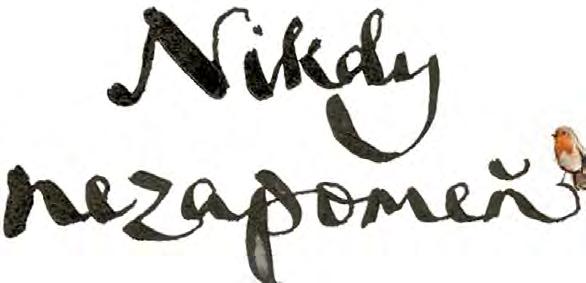 Nikdy
nezapomeň